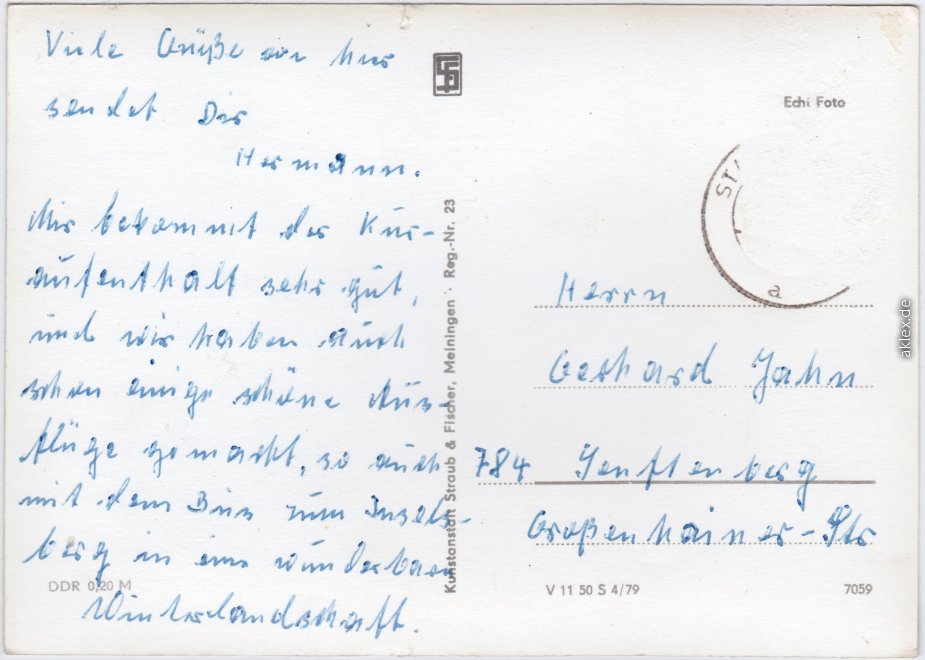 Viele Grüße von hier
sendet Dir
Hermann.
Mir bekommt der Kur-
aufenthalt sehr gut,
und wir haben auch
schon einige schöne Aus-
flüge gemacht, so auch
mit dem Bus zum Insels-
berg in eine wunderbare
Winterlandschaft.
DDR 0,20 M
Kunstanstalt Straub & Fischer, Meiningen · Reg.-Nr. 23
Echt Foto
STA
a
Herrn
Gerhard Jahn
784 Senftenberg
Großenhainer-Str
V 11 50 S 4/79
7059
aklex.de